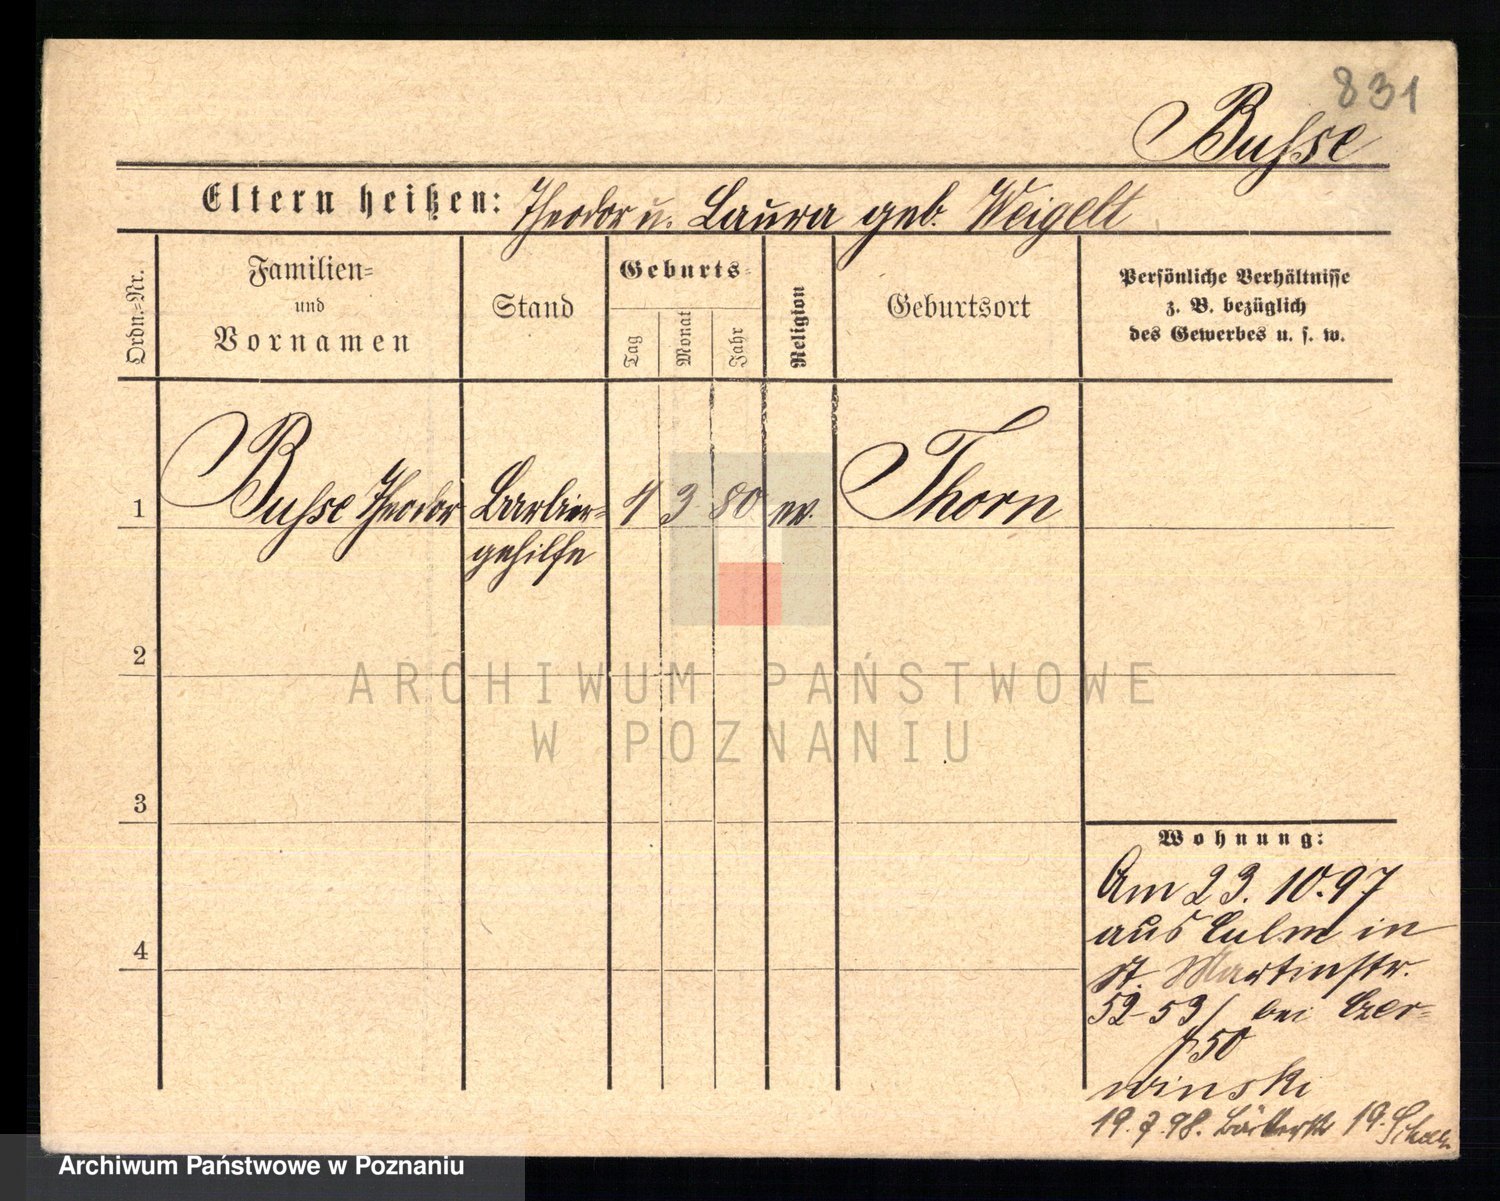 831
Busse
Eltern heißen: Theodor u. Laura geb. Weigelt
Ordn.-Nr.
Familien-
und
Vornamen
Stand
Geburts-
Tag
Monat
Jahr
Religion
Geburtsort
Persönliche Verhältnisse
z. B. bezüglich
des Gewerbes u. s. w.
1 Busse Theodor Barbier- 4 3 80 ev. Thorn
gehilfe
2
3
4
ARCHIWUM PAŃSTWOWE
W POZNANIU
Wohnung:
Am 23.10.97
aus Culm in
St. Martinstr.
52-53/ bei Czer-
50
winski
19.7.98. Bäckerstr 19.
Archiwum Państwowe w Poznaniu